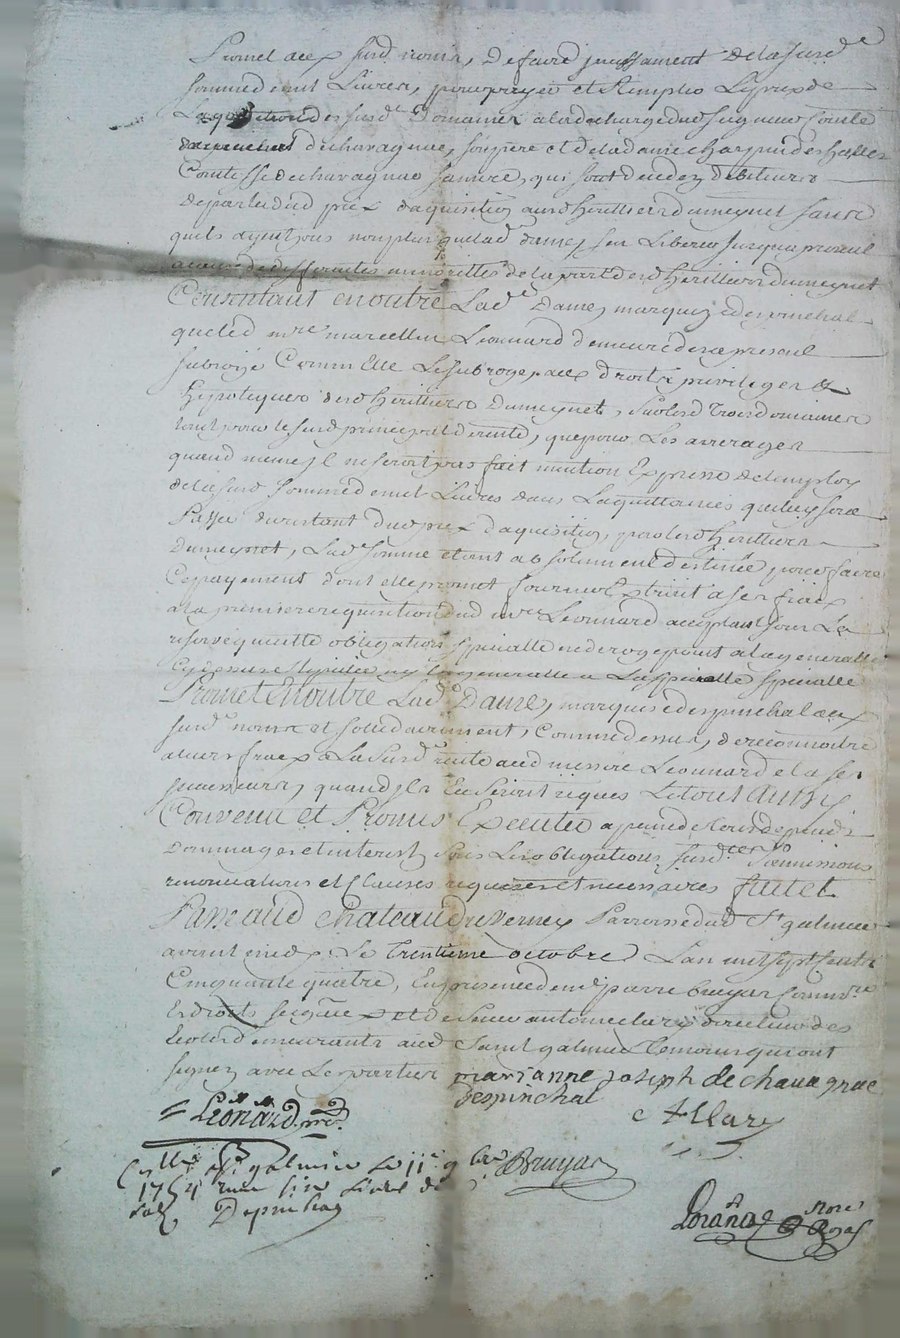 Promet aux susd. noms, de faire jncessament de la susde
somme de mil Livres, pour payer et Remplir Le prix de
Laquisition des susd. Domaines a la decharge du Seigneur Comte
de chavagnac, son pere et de la dame charpin des halles
Comtesse de chavagnac sa mere, qui sont debiteurs
de partie dud. prix daquisition aux heritiers dumeynet sans
quils ayent non plus que lad. dame, sen Liberer jusqua present
a cause des de la part desd. heritiers dumeynet
Consentant en outre Lad.e Dame, marquise despinchal
que led. mre marcellin Leonnard demeure des a present
subrogé Comm Elle Le subroge, aux droits, privileges &
hipoteques desd. heritiers Dumeynet, sur lesd. trois domaines
tant pour le susd. principal de rente, que pour Les arrerages
quand meme jl ne seroit pas fait mention Expresse de lemploy
de la susd. somme de mil Livres dans La quittance qui luy sera
Passée du restant dud. prix daquisition, par lesd. heritiers
Dumeynet, Lad. somme etant absolument destinée pour faire
Ce payement dont elle promet fournir Extrait a ses fraix
a la premiere requisition dud. mre Leonnard acceptant sous La
reserve que cette obligation specialle ne deroge point a la generalle
ny la generalle a La specialle
Promet En outre Lad.e Dame, marquise despinchal aux
susd. noms et solidairement, Comme dessus, de reconnoitre
a leurs fraix La susd. rente aud. messire Leonnard et a ses
successeurs, quand jls En seront requis Le tout ainsy
Convenu et Promis Executer a peine de tous depends
Dommages et interest, sous Les obligations, susd. soumissions
renonciations et Clauses requises et necessaires fait et
Passé aud. Chateau du verney Parroisse dud. St galmier
avant midy Le trentieme octobre Lan mil sept cents
Cinquante quatre, En presence de mre pierre bruyas Commre
En droits seigneuriaux et de sieur antoine clary directeur des
demeurants aud. Saint galmier temoins qui ont
signez avec Les parties marianne joseph de chavagnac
despinchal
Léonard. pre.
A Clary
Bruyas
Clle a St. galmier le 11e 9bre
1754
Depinchal
Nore
Royal